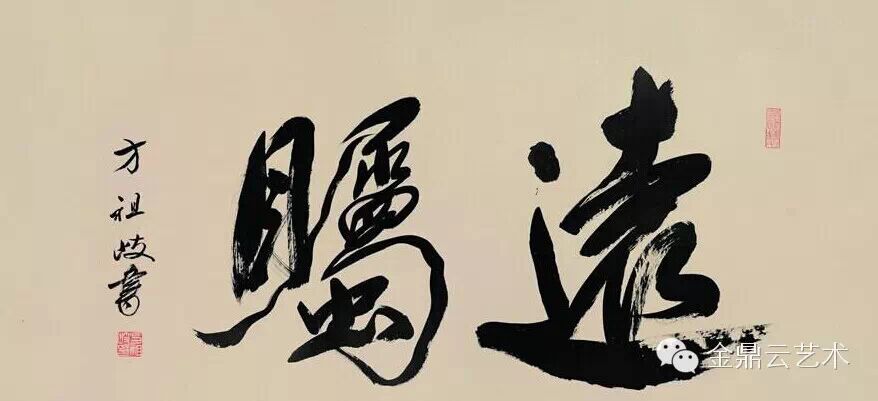 遠矚
方祖岐書
金鼎云艺术